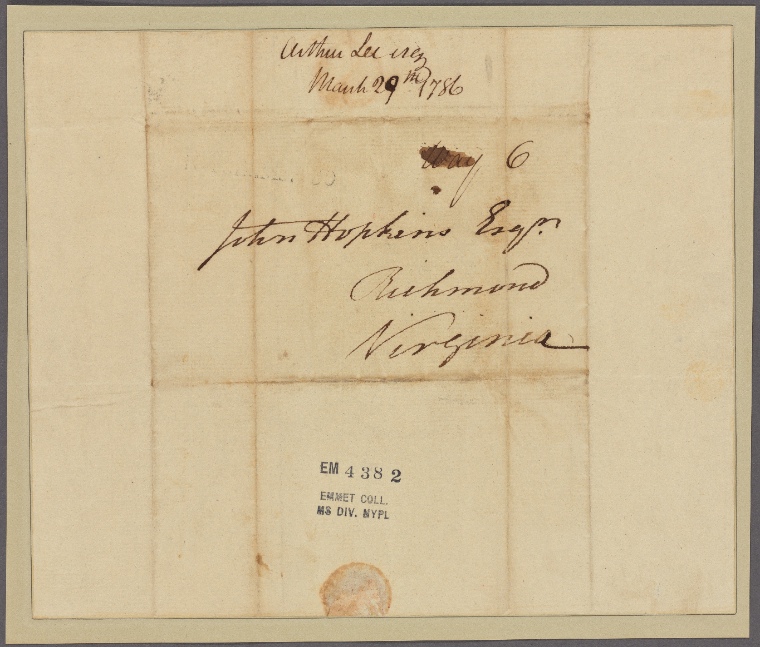 Arthur Lee esq
March 29th 1786
Way 6
John Hopkins Esqr.
Richmond
Virginia
EM 4382
EMMET COLL.
MS DIV. NYPL